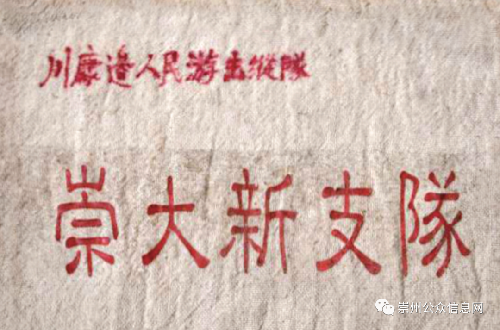 川康邊人民游击縱隊
崇大新支隊
崇州公众信息网